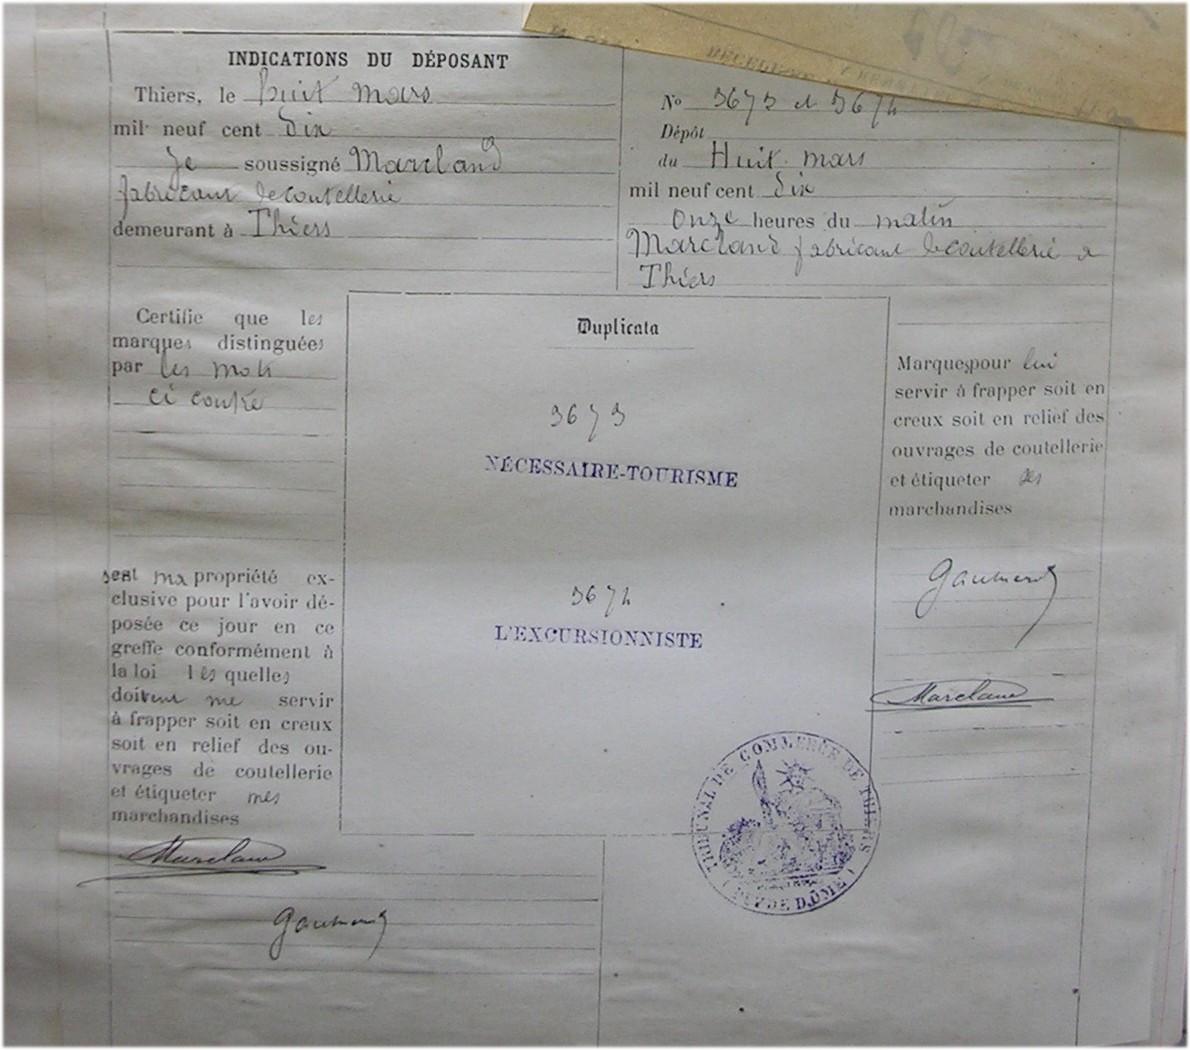 INDICATIONS DU DÉPOSANT
Thiers, le huit mars
mil neuf cent Dix
Je soussigné Marcland
fabricant de coutellerie
demeurant à Thiers
No 3673 et 3674
Dépôt
du Huit mars
mil neuf cent Dix
Onze heures du matin
Marcland fabricant de coutellerie a
Thiers
Certifie que les
marques distinguées
par les mots
ci contre
sont ma propriété ex-
clusive pour l'avoir dé-
posée ce jour en ce
greffe conformément à
la loi lesquelles
doivent me servir
à frapper soit en creux
soit en relief des ou-
vrages de coutellerie
et étiqueter mes
marchandises
Marcland
Duplicata
3673
NÉCESSAIRE-TOURISME
3674
L'EXCURSIONNISTE
TRIBUNAL DE COMMERCE DE THIERS
(PUY DE DÔME)
Marques pour lui
servir à frapper soit en
creux soit en relief des
ouvrages de coutellerie
et étiqueter ses
marchandises
Marcland